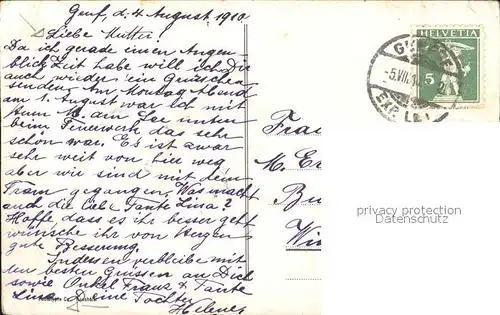 Genf, d. 4 August 1910
Liebe Mutter!
Da ich gerade einen Augen-
blick Zeit habe will ich Dir
auch wieder ein Grüsschen
senden. Am Montag Abend
am 1. August war ich mit
Hum M. am See unten
beim Feuerwerk das sehr
schön war. Es ist zwar
sehr weit von hier weg
aber wir sind mit dem
Tram gegangen. Was macht
auch die liebe Tante Lina?
Hoffe, dass es ihr besser geht
wünsche ihr von Herzen
gute Besserung.
Indessen verbleibe mit
den besten Grüssen an Dich
sowie Onkel Franz & Tante
Lina Deine Tochter
Helene
HELVETIA
5
Frau
M.
privacy protection
Datenschutz